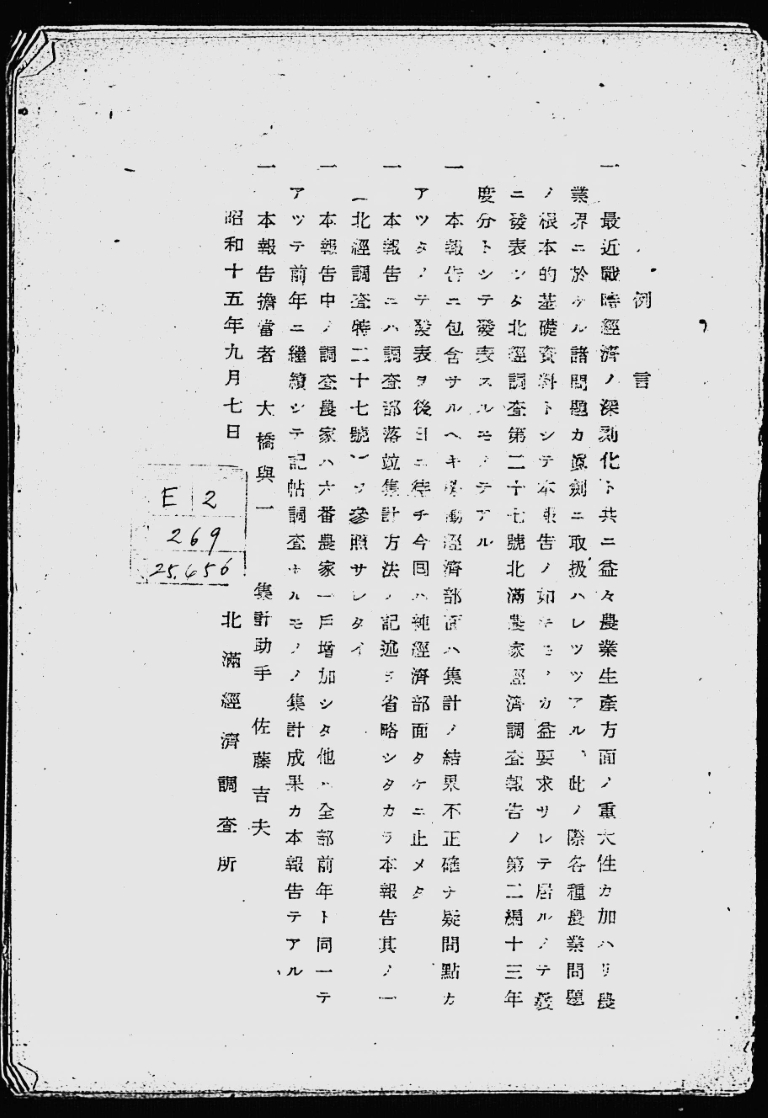 例言
一 最近戰時經濟ノ深刻化ト共ニ益々農業生產方面ノ重大性カ加ハリ農
業界ニ於ケル諸問題カ眞劍ニ取扱ハレツツアル、此ノ際各種農業問題
ノ根本的基礎資料トシテ本報告ノ如キモノカ益要求サレテ居ルノテ曩
ニ發表シタ北經調查第二十七號北滿農家經濟調查報告ノ第二編十三年
度分トシテ發表スルモノテアル
一 本報告ニ包含サルヘキ勞働經濟部面ハ集計ノ結果不正確ナ疑問點カ
アツタノテ發表ヲ後日ニ待チ今回ハ純經濟部面タケニ止メタ
一 本報告ニハ調查部落竝集計方法ノ記述ヲ省略シタカラ本報告其ノ一
(北經調查特二十七號)ヲ參照サレタイ
一 本報告中ノ調查農家ハ六番農家一戶增加シタ他ハ全部前年ト同一テ
アツテ前年ニ繼續シテ記帖調查サルモノノ集計成果カ本報告テアル
一 本報告擔當者 大橋與一 集計助手 佐藤吉夫
昭和十五年九月七日
北滿經濟調查所
E 2
269
25.456